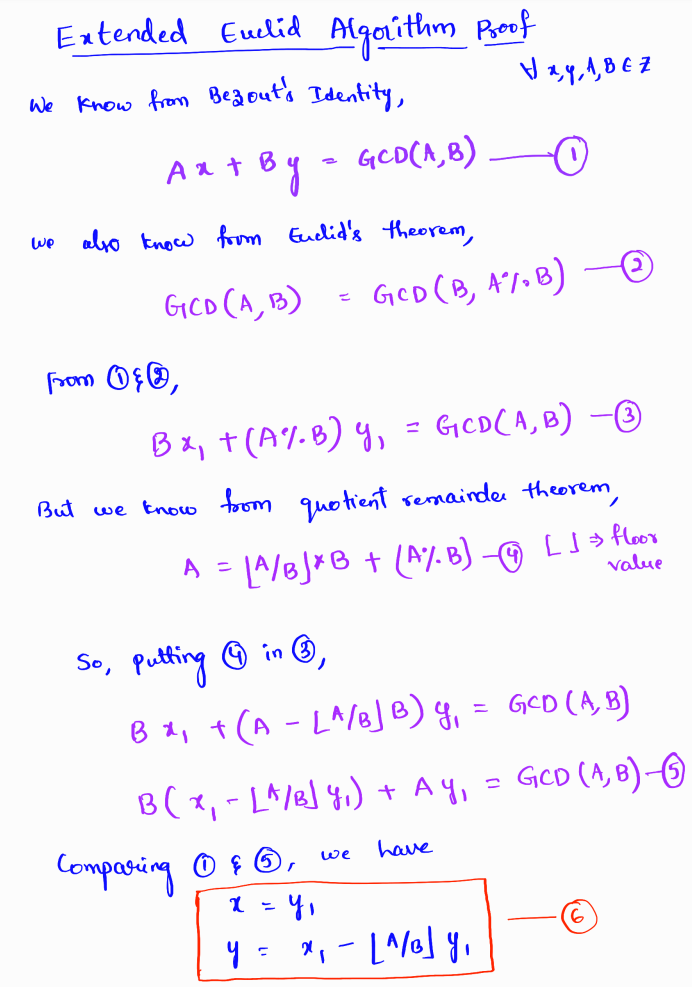 Extended Euclid Algorithm Proof
∀ x,y,A,B ∈ Z
We know from Bezout's Identity,
Ax + By = GCD(A,B) — ①
We also know from Euclid's theorem,
GCD(A,B) = GCD(B, A%B) — ②
From ① & ②,
Bx₁ + (A%B) y₁ = GCD(A,B) — ③
But we know from quotient remainder theorem,
A = ⌊A/B⌋*B + (A%B) — ④ ⌊ ⌋ ⇒ floor
value
So, putting ④ in ③,
Bx₁ + (A - ⌊A/B⌋B) y₁ = GCD(A,B)
B(x₁ - ⌊A/B⌋ y₁) + Ay₁ = GCD(A,B) — ⑤
Comparing ① & ⑤, we have
x = y₁
y = x₁ - ⌊A/B⌋ y₁ — ⑥